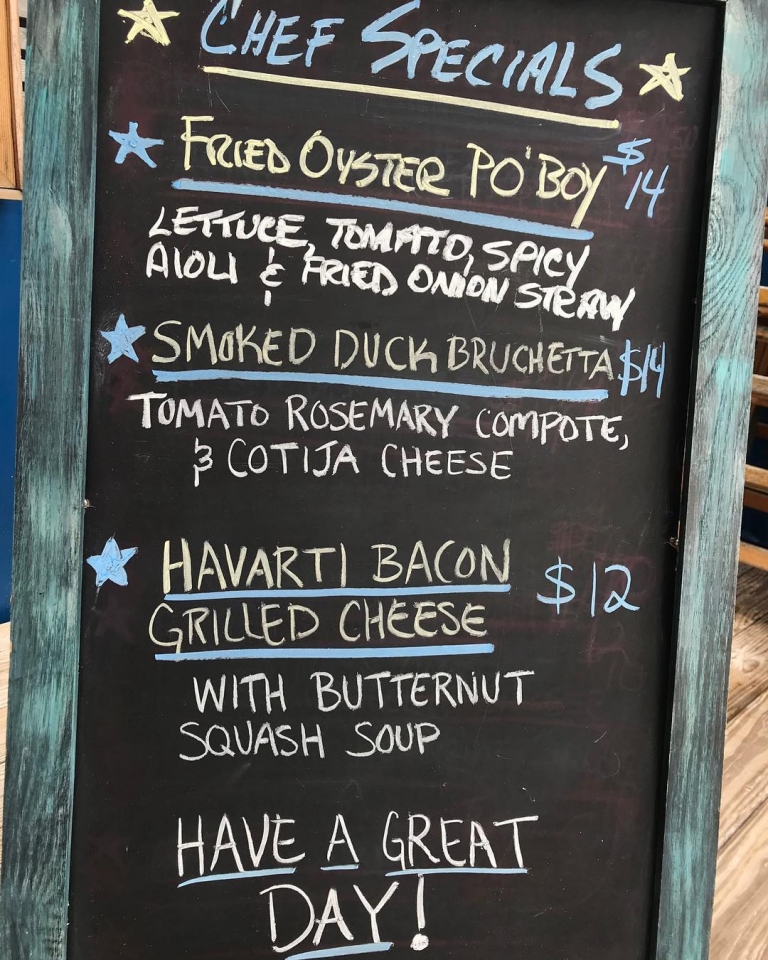 CHEF SPECIALS
FRIED OYSTER PO'BOY $14
LETTUCE, TOMATO, SPICY
AIOLI & FRIED ONION STRAW
SMOKED DUCK BRUCHETTA $14
TOMATO ROSEMARY COMPOTE,
& COTIJA CHEESE
HAVARTI BACON
GRILLED CHEESE $12
WITH BUTTERNUT
SQUASH SOUP
HAVE A GREAT
DAY!